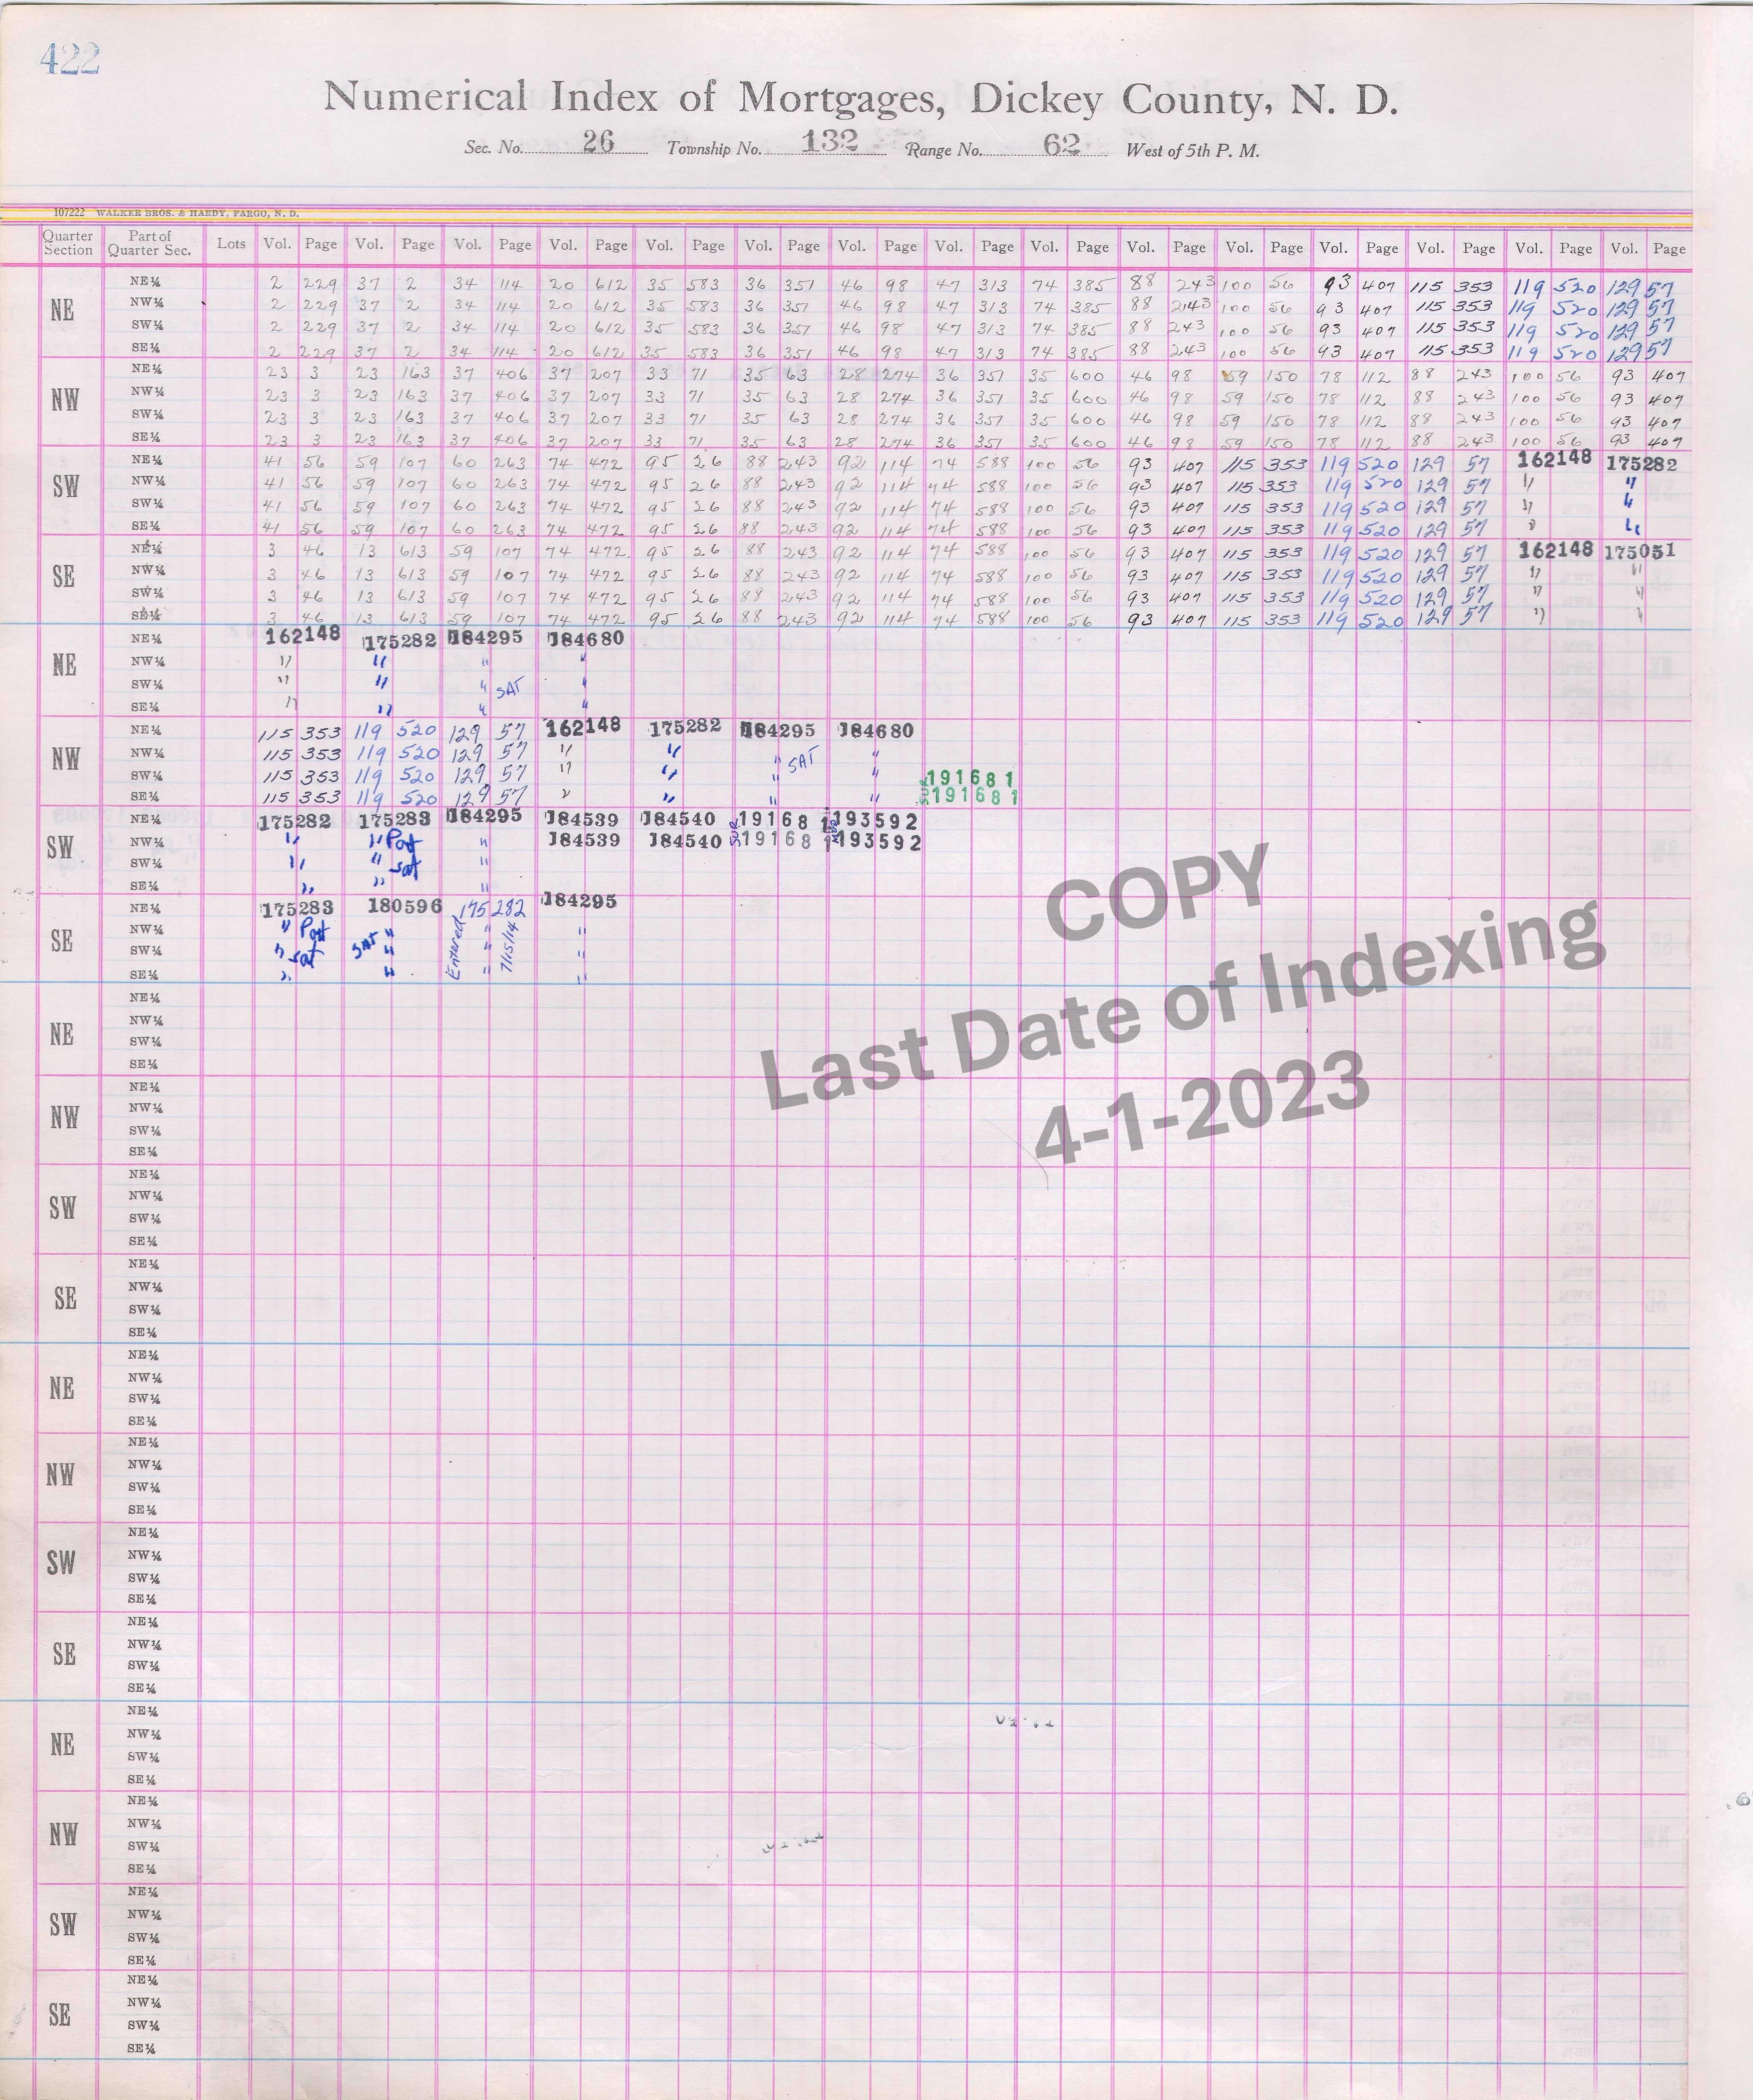 422
Numerical Index of Mortgages, Dickey County, N. D.
Sec. No. 26 Township No. 132 Range No. 62 West of 5th P. M.
107222 WALKER BROS. & HARDY, FARGO, N. D.
Quarter Section Part of Quarter Sec. Lots Vol. Page Vol. Page Vol. Page Vol. Page Vol. Page Vol. Page Vol. Page Vol. Page Vol. Page Vol. Page Vol. Page Vol. Page Vol. Page Vol. Page Vol. Page
NE
NE¼ 2 229 37 2 34 114 20 612 35 583 36 351 46 98 47 313 74 385 88 243 100 56 93 407 115 353 119 520 129 57
NW¼ 2 229 37 2 34 114 20 612 35 583 36 351 46 98 47 313 74 385 88 243 100 56 93 407 115 353 119 520 129 57
SW¼ 2 229 37 2 34 114 20 612 35 583 36 351 46 98 47 313 74 385 88 243 100 56 93 407 115 353 119 520 129 57
SE¼ 2 229 37 2 34 114 20 612 35 583 36 351 46 98 47 313 74 385 88 243 100 56 93 407 115 353 119 520 129 57
NW
NE¼ 23 3 23 163 37 406 37 207 33 71 35 63 28 274 36 351 35 600 46 98 59 150 78 112 88 243 100 56 93 407
NW¼ 23 3 23 163 37 406 37 207 33 71 35 63 28 274 36 351 35 600 46 98 59 150 78 112 88 243 100 56 93 407
SW¼ 23 3 23 163 37 406 37 207 33 71 35 63 28 274 36 351 35 600 46 98 59 150 78 112 88 243 100 56 93 407
SE¼ 23 3 23 163 37 406 37 207 33 71 35 63 28 274 36 351 35 600 46 98 59 150 78 112 88 243 100 56 93 407
SW
NE¼ 41 56 59 107 60 263 74 472 95 26 88 243 92 114 74 588 100 56 93 407 115 353 119 520 129 57 162148 175282
NW¼ 41 56 59 107 60 263 74 472 95 26 88 243 92 114 74 588 100 56 93 407 115 353 119 520 129 57 " "
SW¼ 41 56 59 107 60 263 74 472 95 26 88 243 92 114 74 588 100 56 93 407 115 353 119 520 129 57 " "
SE¼ 41 56 59 107 60 263 74 472 95 26 88 243 92 114 74 588 100 56 93 407 115 353 119 520 129 57 " "
SE
NE¼ 3 46 13 613 59 107 74 472 95 26 88 243 92 114 74 588 100 56 93 407 115 353 119 520 129 57 162148 175051
NW¼ 3 46 13 613 59 107 74 472 95 26 88 243 92 114 74 588 100 56 93 407 115 353 119 520 129 57 " "
SW¼ 3 46 13 613 59 107 74 472 95 26 88 243 92 114 74 588 100 56 93 407 115 353 119 520 129 57 " "
SE¼ 3 46 13 613 59 107 74 472 95 26 88 243 92 114 74 588 100 56 93 407 115 353 119 520 129 57 " "
NE
NE¼ 162148 175282 184295 184680
NW¼ " " " "
SW¼ " " " SAT "
SE¼ " " " "
NW
NE¼ 115 353 119 520 129 57 162148 175282 184295 184680
NW¼ 115 353 119 520 129 57 " " " SAT "
SW¼ 115 353 119 520 129 57 " " " " 191681
SE¼ 115 353 119 520 129 57 " " " " 191681
SW
NE¼ 175282 175283 184295 184539 184540 SUB 191681 193592
NW¼ " " Part " 184539 184540 191681 193592
SW¼ " " sat "
SE¼ " " "
SE
NE¼ 175283 180596 175282 184295
NW¼ " Part " " "
SW¼ " sat SAT " Entered " 7/15/14 "
SE¼ " " " "
NE
NE¼
NW¼
SW¼
SE¼
NW
NE¼
NW¼
SW¼
SE¼
SW
NE¼
NW¼
SW¼
SE¼
SE
NE¼
NW¼
SW¼
SE¼
NE
NE¼
NW¼
SW¼
SE¼
NW
NE¼
NW¼
SW¼
SE¼
SW
NE¼
NW¼
SW¼
SE¼
SE
NE¼
NW¼
SW¼
SE¼
NE
NE¼
NW¼
SW¼
SE¼
NW
NE¼
NW¼
SW¼
SE¼
SW
NE¼
NW¼
SW¼
SE¼
SE
NE¼
NW¼
SW¼
SE¼
COPY
Last Date of Indexing
4-1-2023